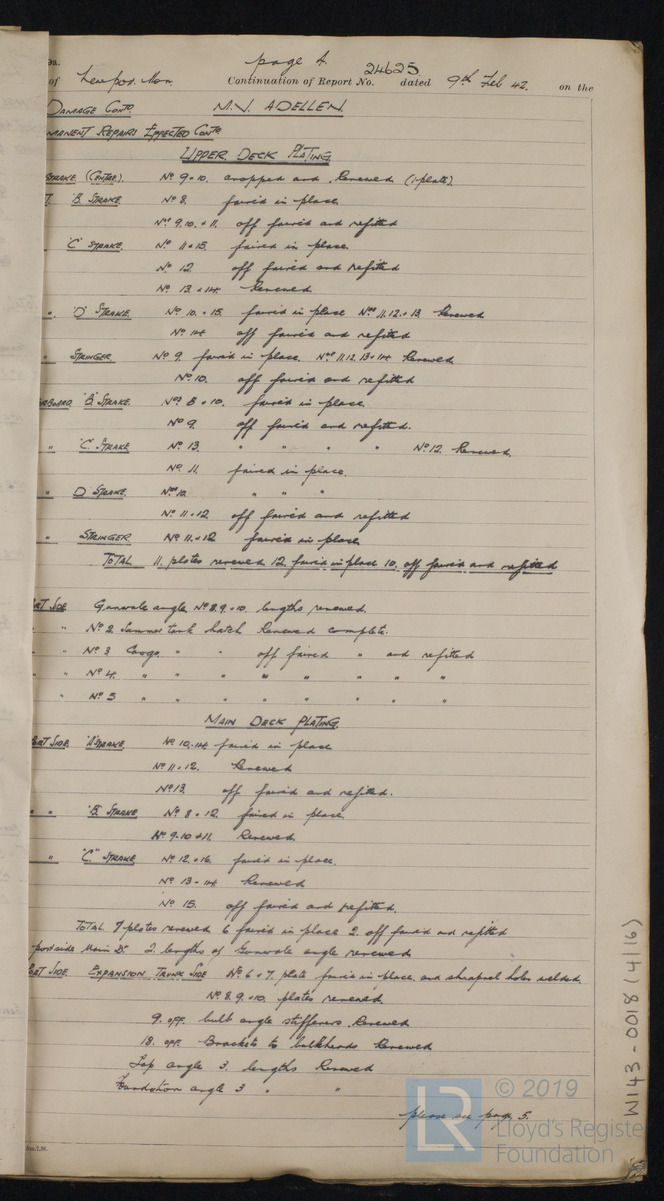 9a.
page 4.
of Newport Mon. Continuation of Report No. 24625 dated 9th Feb 42. on the
DAMAGE CONTD M.V. ADELLEN
MANENT REPAIRS EFFECTED CONTD
UPPER DECK PLATING
STRAKE (CENTRE). No 9 + 10. cropped and renewed (1 plate).
T. 'B' STRAKE No 8. faired in place
Nos 9. 10. + 11. off faired and refitted
'C' STRAKE. No 11 + 15. faired in place.
No 12. off faired and refitted
No 13. + 14. Renewed
" 'D' STRAKE. No. 10. + 15. faired in place Nos 11. 12. + 13 Renewed
No 14 off faired and refitted
" STRINGER No 9. faired in place. Nos 11. 12. 13 + 14 Renewed
No 10. off faired and refitted
RBOARD 'B' STRAKE. Nos 8 + 10. faired in place.
No 9. off faired and refitted.
" 'C' STRAKE No 13. " " " " No 12 Renewed.
No 11. faired in place.
" D STRAKE. No 10. " " "
No 11 + 12 off faired and refitted
" STRINGER No 11. + 12 faired in place
TOTAL 11. plates renewed 12. faired in place 10. off faired and refitted
RT SIDE Gunwale angle No 8. 9. + 10. lengths renewed
" " No 2 Summer tank hatch Renewed complete.
" " No 3 Cargo " " off faired " and refitted
" " No 4. " " " " " " " "
" No 5 " " " " " " " "
MAIN DECK PLATING
PORT SIDE 'A' STRAKE. No 10. 14 faired in place
No 11 + 12. Renewed
No 13. off faired and refitted.
" " 'B' STRAKE No 8 + 12. faired in place.
No 9. 10 + 11. Renewed.
" "C." STRAKE No 12. + 16. faired in place.
No 13 + 14 Renewed
No 15. off faired and refitted.
TOTAL 7 plates renewed 6 faired in place 2. off faired and refitted
port side Main Dk 2. lengths of Gunwale angle renewed
PORT SIDE EXPANSION TRUNK SIDE No 6 + 7. plate faired in place and shrapnel holes welded.
No 8. 9. + 10. plates renewed
9. OFF. bulb angle stiffeners Renewed
18. OFF. Brackets to bulkheads Renewed
Top angle 3. lengths Renewed
Foundation angle 3 " "
please see page 5.
W143-0018 (4/16)
LR
© 2019
Lloyd's Register
Foundation